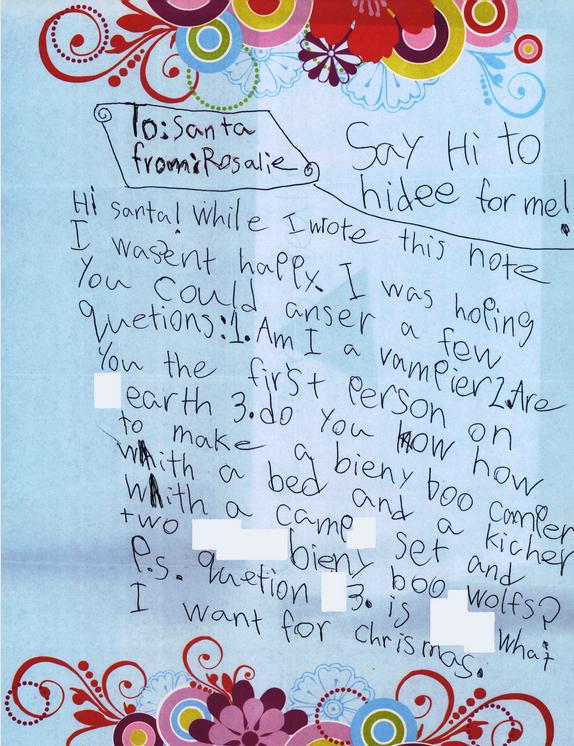 To: Santa
from: Rosalie
Say Hi to
hidee for me!
Hi santa! While I wrote this note
I wasent happy. I was hoping
You could anser a few
quetions: 1. Am I a vampier 2. Are
You the first person on
earth 3. do you know how
to make a bieny boo camper
whith a bed and a kicher
whith a camp set and
two bieny boo wolfs?
P.s. quetion 3. is What
I want for chrismas.